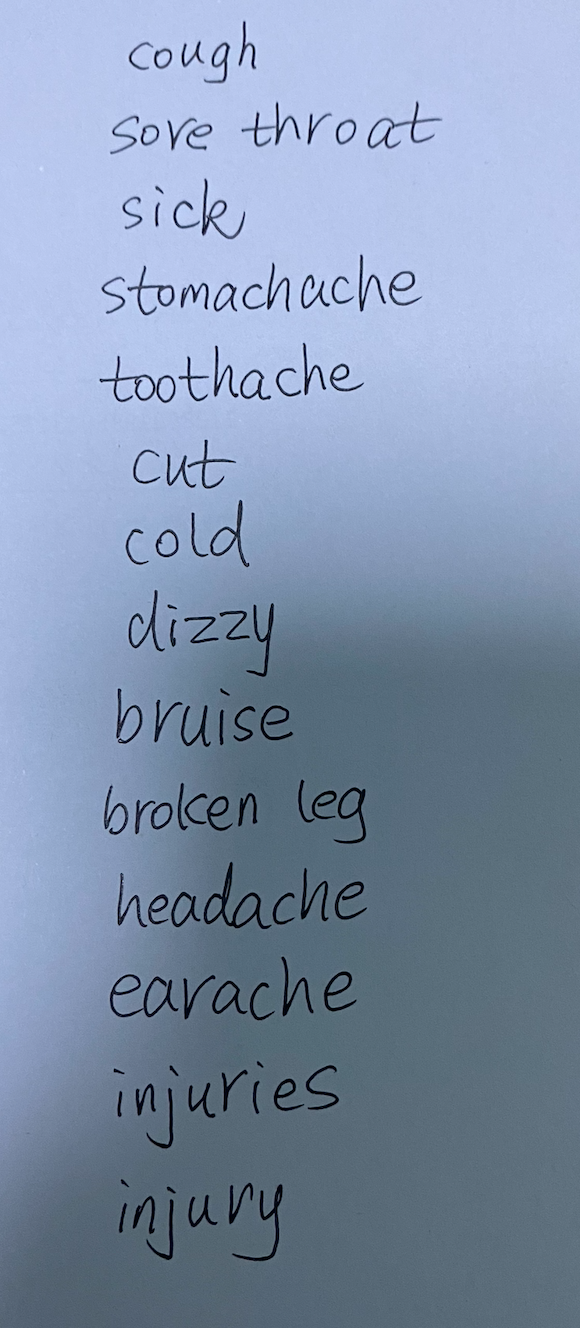 cough
sore throat
sick
stomachache
toothache
cut
cold
dizzy
bruise
broken leg
headache
earache
injuries
injury